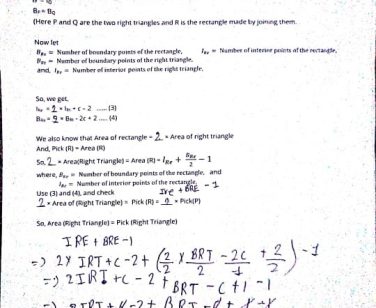 Bₚ = B_Q
(Here P and Q are the two right triangles and R is the rectangle made by joining them.
Now let
B_Re = Number of boundary points of the rectangle, I_Re = Number of interior points of the rectangle.
B_RT = Number of boundary points of the right triangle.
and, I_RT = Number of interior points of the right triangle.
So, we get,
= 2 × + c - 2 ...... (3)
= 2 × - 2c + 2 .... (4)
We also know that Area of rectangle = 2 × Area of right triangle
And, Pick (R) = Area (R)
So, 2 × Area(Right Triangle) = Area (R) = I_Re + B_Re/2 - 1
where, B_Re = Number of boundary points of the rectangle, and
I_Re = Number of interior points of the rectangle.
Use (3) and (4), and check IRe + BRE - 1
2 × Area of (Right Triangle) = Pick (R) = × Pick(P)
So, Area (Right Triangle) = Pick (Right Triangle)
IRE + BRE - 1
=> 2 × IRT + C - 2 + (2/2 × BRT/2 - 2C/1 + 2/2) - 1
=> 2 IRT + C - 2 + BRT - C + 1 - 1